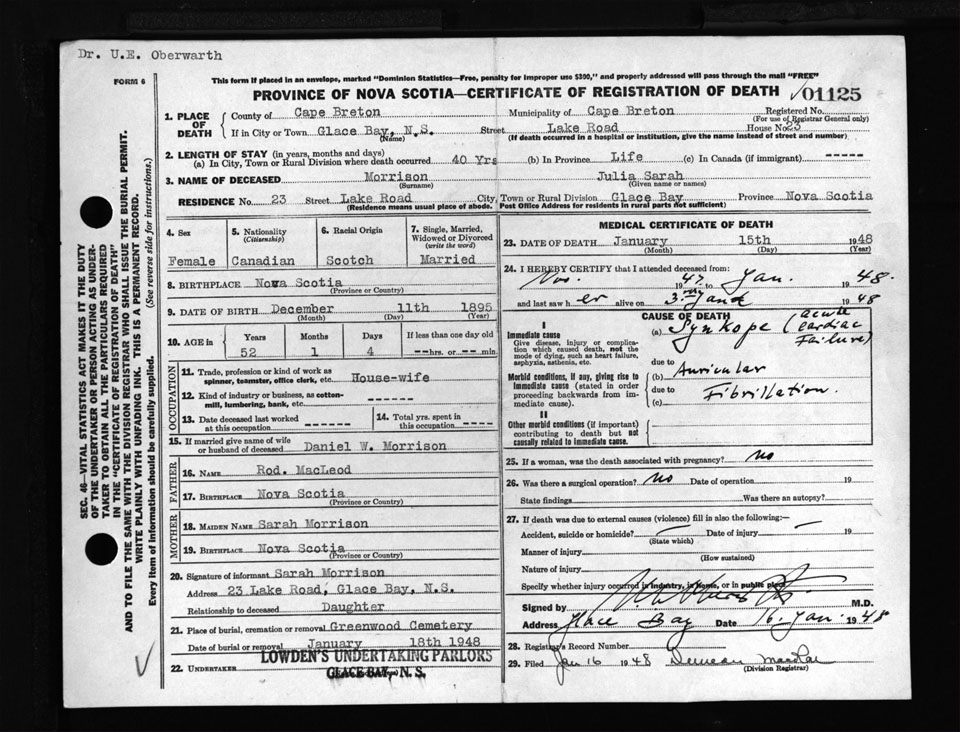 Dr. U.E. Oberwarth
FORM 6
This form if placed in an envelope, marked "Dominion Statistics—Free, penalty for improper use $300," and properly addressed will pass through the mail "FREE"
PROVINCE OF NOVA SCOTIA—CERTIFICATE OF REGISTRATION OF DEATH 01125
1. PLACE OF DEATH
County of Cape Breton Municipality of Cape Breton Registered No.
(For use of Registrar General only)
If in City or Town Glace Bay, N.S. Street Lake Road House No. 23
(Name) (If death occurred in a hospital or institution, give the name instead of street and number)
2. LENGTH OF STAY (in years, months and days)
(a) In City, Town or Rural Division where death occurred 40 Yrs (b) In Province Life (c) In Canada (if immigrant) -----
3. NAME OF DECEASED Morrison Julia Sarah
(Surname) (Given name or names)
RESIDENCE No. 23 Street Lake Road City, Town or Rural Division Glace Bay Province Nova Scotia
(Residence means usual place of abode. Post Office Address for residents in rural parts not sufficient)
4. Sex
Female
5. Nationality
(Citizenship)
Canadian
6. Racial Origin
Scotch
7. Single, Married, Widowed or Divorced
(write the word)
Married
8. BIRTHPLACE Nova Scotia
(Province or Country)
9. DATE OF BIRTH December 11th 1895
(Month) (Day) (Year)
10. AGE in Years Months Days If less than one day old
52 1 4 --hrs. or -- min.
OCCUPATION
11. Trade, profession or kind of work as spinner, teamster, office clerk, etc. House-wife
12. Kind of industry or business, as cotton-mill, lumbering, bank, etc. -----
13. Date deceased last worked at this occupation ------
14. Total yrs. spent in this occupation -----
15. If married give name of wife or husband of deceased Daniel W. Morrison
FATHER
16. NAME Rod. MacLeod
17. BIRTHPLACE Nova Scotia
(Province or Country)
MOTHER
18. MAIDEN NAME Sarah Morrison
19. BIRTHPLACE Nova Scotia
(Province or Country)
20. Signature of informant Sarah Morrison
Address 23 Lake Road, Glace Bay, N.S.
Relationship to deceased Daughter
21. Place of burial, cremation or removal Greenwood Cemetery
Date of burial or removal January 18th 1948
22. UNDERTAKER LOWDEN'S UNDERTAKING PARLORS
GLACE BAY, N. S.
MEDICAL CERTIFICATE OF DEATH
23. DATE OF DEATH January 15th 1948
(Month) (Day) (Year)
24. I HEREBY CERTIFY that I attended deceased from:
Nov. 1947 to Jan. 1948.
and last saw her alive on 3. 1948
CAUSE OF DEATH
I
Immediate cause
Give disease, injury or complication which caused death, not the mode of dying, such as heart failure, asphyxia, asthenia, etc.
(a) Synkope (acute cardiac Failure)
due to
Morbid conditions, if any, giving rise to immediate cause (stated in order proceeding backwards from immediate cause).
(b) Auricular
due to
(c) Fibrillation.
II
Other morbid conditions (if important) contributing to death but not causally related to immediate cause.
25. If a woman, was the death associated with pregnancy? no
26. Was there a surgical operation? no Date of operation 19
State findings Was there an autopsy?
27. If death was due to external causes (violence) fill in also the following:—
Accident, suicide or homicide? Date of injury 19
(State which)
Manner of injury
(How sustained)
Nature of injury
Specify whether injury occurred in industry, in home, or in public place
Signed by M.D.
Address Glace Bay Date 16. Jan. 1948
28. Registrar's Record Number
29. Filed Jan 16 1948 Duncan
(Division Registrar)
SEC. 46—VITAL STATISTICS ACT MAKES IT THE DUTY OF THE UNDERTAKER OR PERSON ACTING AS UNDERTAKER TO OBTAIN ALL THE PARTICULARS REQUIRED IN THE "CERTIFICATE OF REGISTRATION OF DEATH" AND TO FILE THE SAME WITH THE DIVISION REGISTRAR WHO SHALL ISSUE THE BURIAL PERMIT.
WRITE PLAINLY WITH UNFADING INK. THIS IS A PERMANENT RECORD.
Every item of information should be carefully supplied. (See reverse side for instructions.)